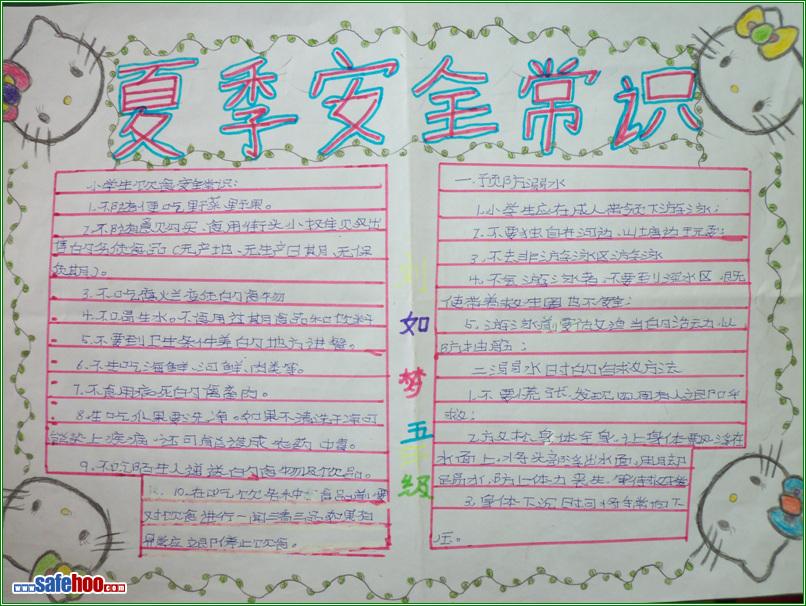 夏季安全常识
小学生饮食安全常识:
1.不随便吃野菜野果。
2.不随意购买、食用街头小摊贩出
售的劣质食品（无产地、无生产日期、无保
质期）。
3.不吃腐烂变质的食物
4.不喝生水。不食用过期食品和饮料
5.不要到卫生条件差的地方进餐。
6.不生吃海鲜、河鲜、肉类等。
7.不食用病死的禽畜肉。
8.生吃水果要洗净。如果不清洗干净可
能染上疾病，还可能造成农药中毒。
9.不吃陌生人递送的食物及饮品。
10.在吃饮
对饮食进行一闻二看三品,如果有
异常应立即停止饮食。
如
梦
五
年
级
一.预防溺水
1.小学生应在成人带领下游泳;
2.不要独自在河边、山塘边玩耍;
3.不去非游泳区游泳
4.不会游泳者,不要到深水区,既
使带着救生圈也不安全;
5.游泳前要做适当的活动,以
防抽筋;
二溺水时的自救方法
1.不要慌张,发现四周有人立即呼
救;
2.放松身体全身,让身体飘浮在
水面上,将头部浮出水面,用脚
踢水,防止体力丧失,等待救援
3.身体下沉时可将手掌向下
压。
www.safehoo.com